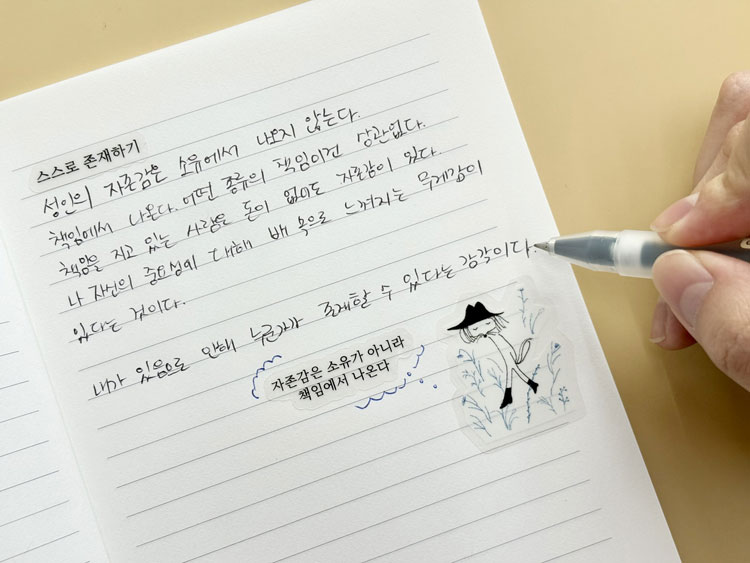 스스로 존재하기
성인의 자존감은 소유에서 나오지 않는다.
책임에서 나온다. 어떤 종류의 책임이건 상관없다.
책임을 지고 있는 사람은 돈이 없어도 자존감이 있다.
나 자신의 중요성에 대해 배 속으로 느껴지는 무게감이
있다는 것이다.
내가 있음으로 인해 누군가가 존재할 수 있다는 감각이다.
자존감은 소유가 아니라
책임에서 나온다